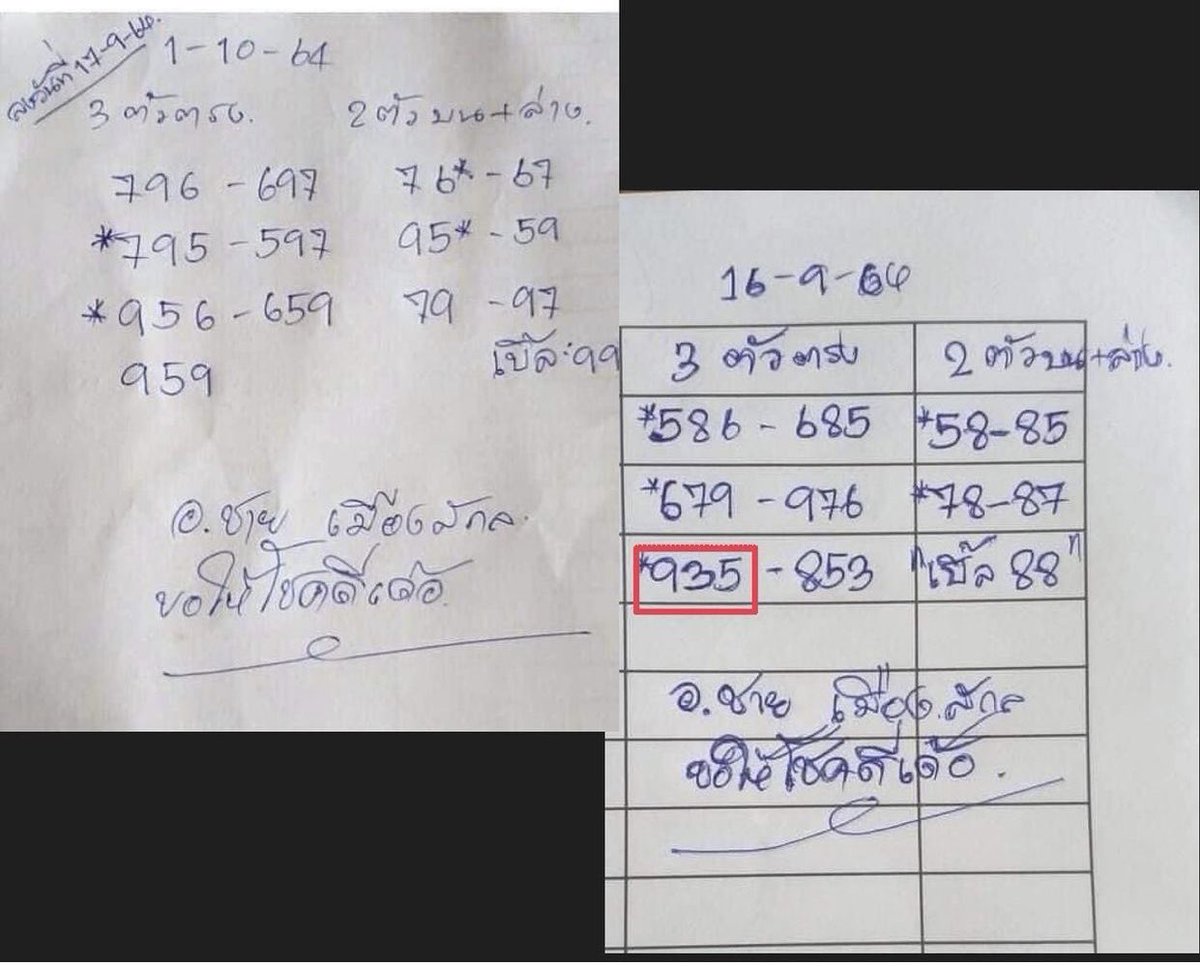 ลงวันที่ 17-9-64.
1-10-64
3 ตัวตรง. 2 ตัวบน+ล่าง.
796 - 697 76* - 67
*795 - 597 95* - 59
*956 - 659 79 - 97
959 เบิ้ล:99
อ.ชาย เมืองสกล.
ขอให้โชคดีเด้อ.
16-9-64
3 ตัวตรง 2 ตัวบน+ล่าง.
*586 - 685 *58-85
*679 - 976 *78-87
*935 - 853 "เบิ้ล 88"
อ.ชาย เมือง.สกล
ขอให้โชคดีเด้อ.